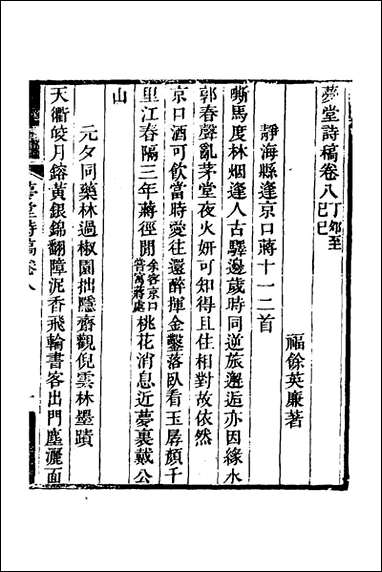 夢堂詩稿卷八丁卯至己巳
福馀英廉著
靜海縣逢京口蔣十一二首
嘶馬度林烟逢人古驛邊歲時同逆旅邂逅亦因緣水
郭春聲亂茅堂夜火妍可知得且住相對故依然
京口酒可飲當時愛往還醉揮金鑿落臥看玉孱顏千
里江春隔三年蔣徑閒余客京口嘗寓蔣處桃花消息近夢裏戴公
山
元夕同藥林過椒園拙隱齋觀倪雲林墨蹟
天衢皎月鎔黃銀錦翻障泥香飛輪書客出門塵灑面
夢堂詩稿卷八
一